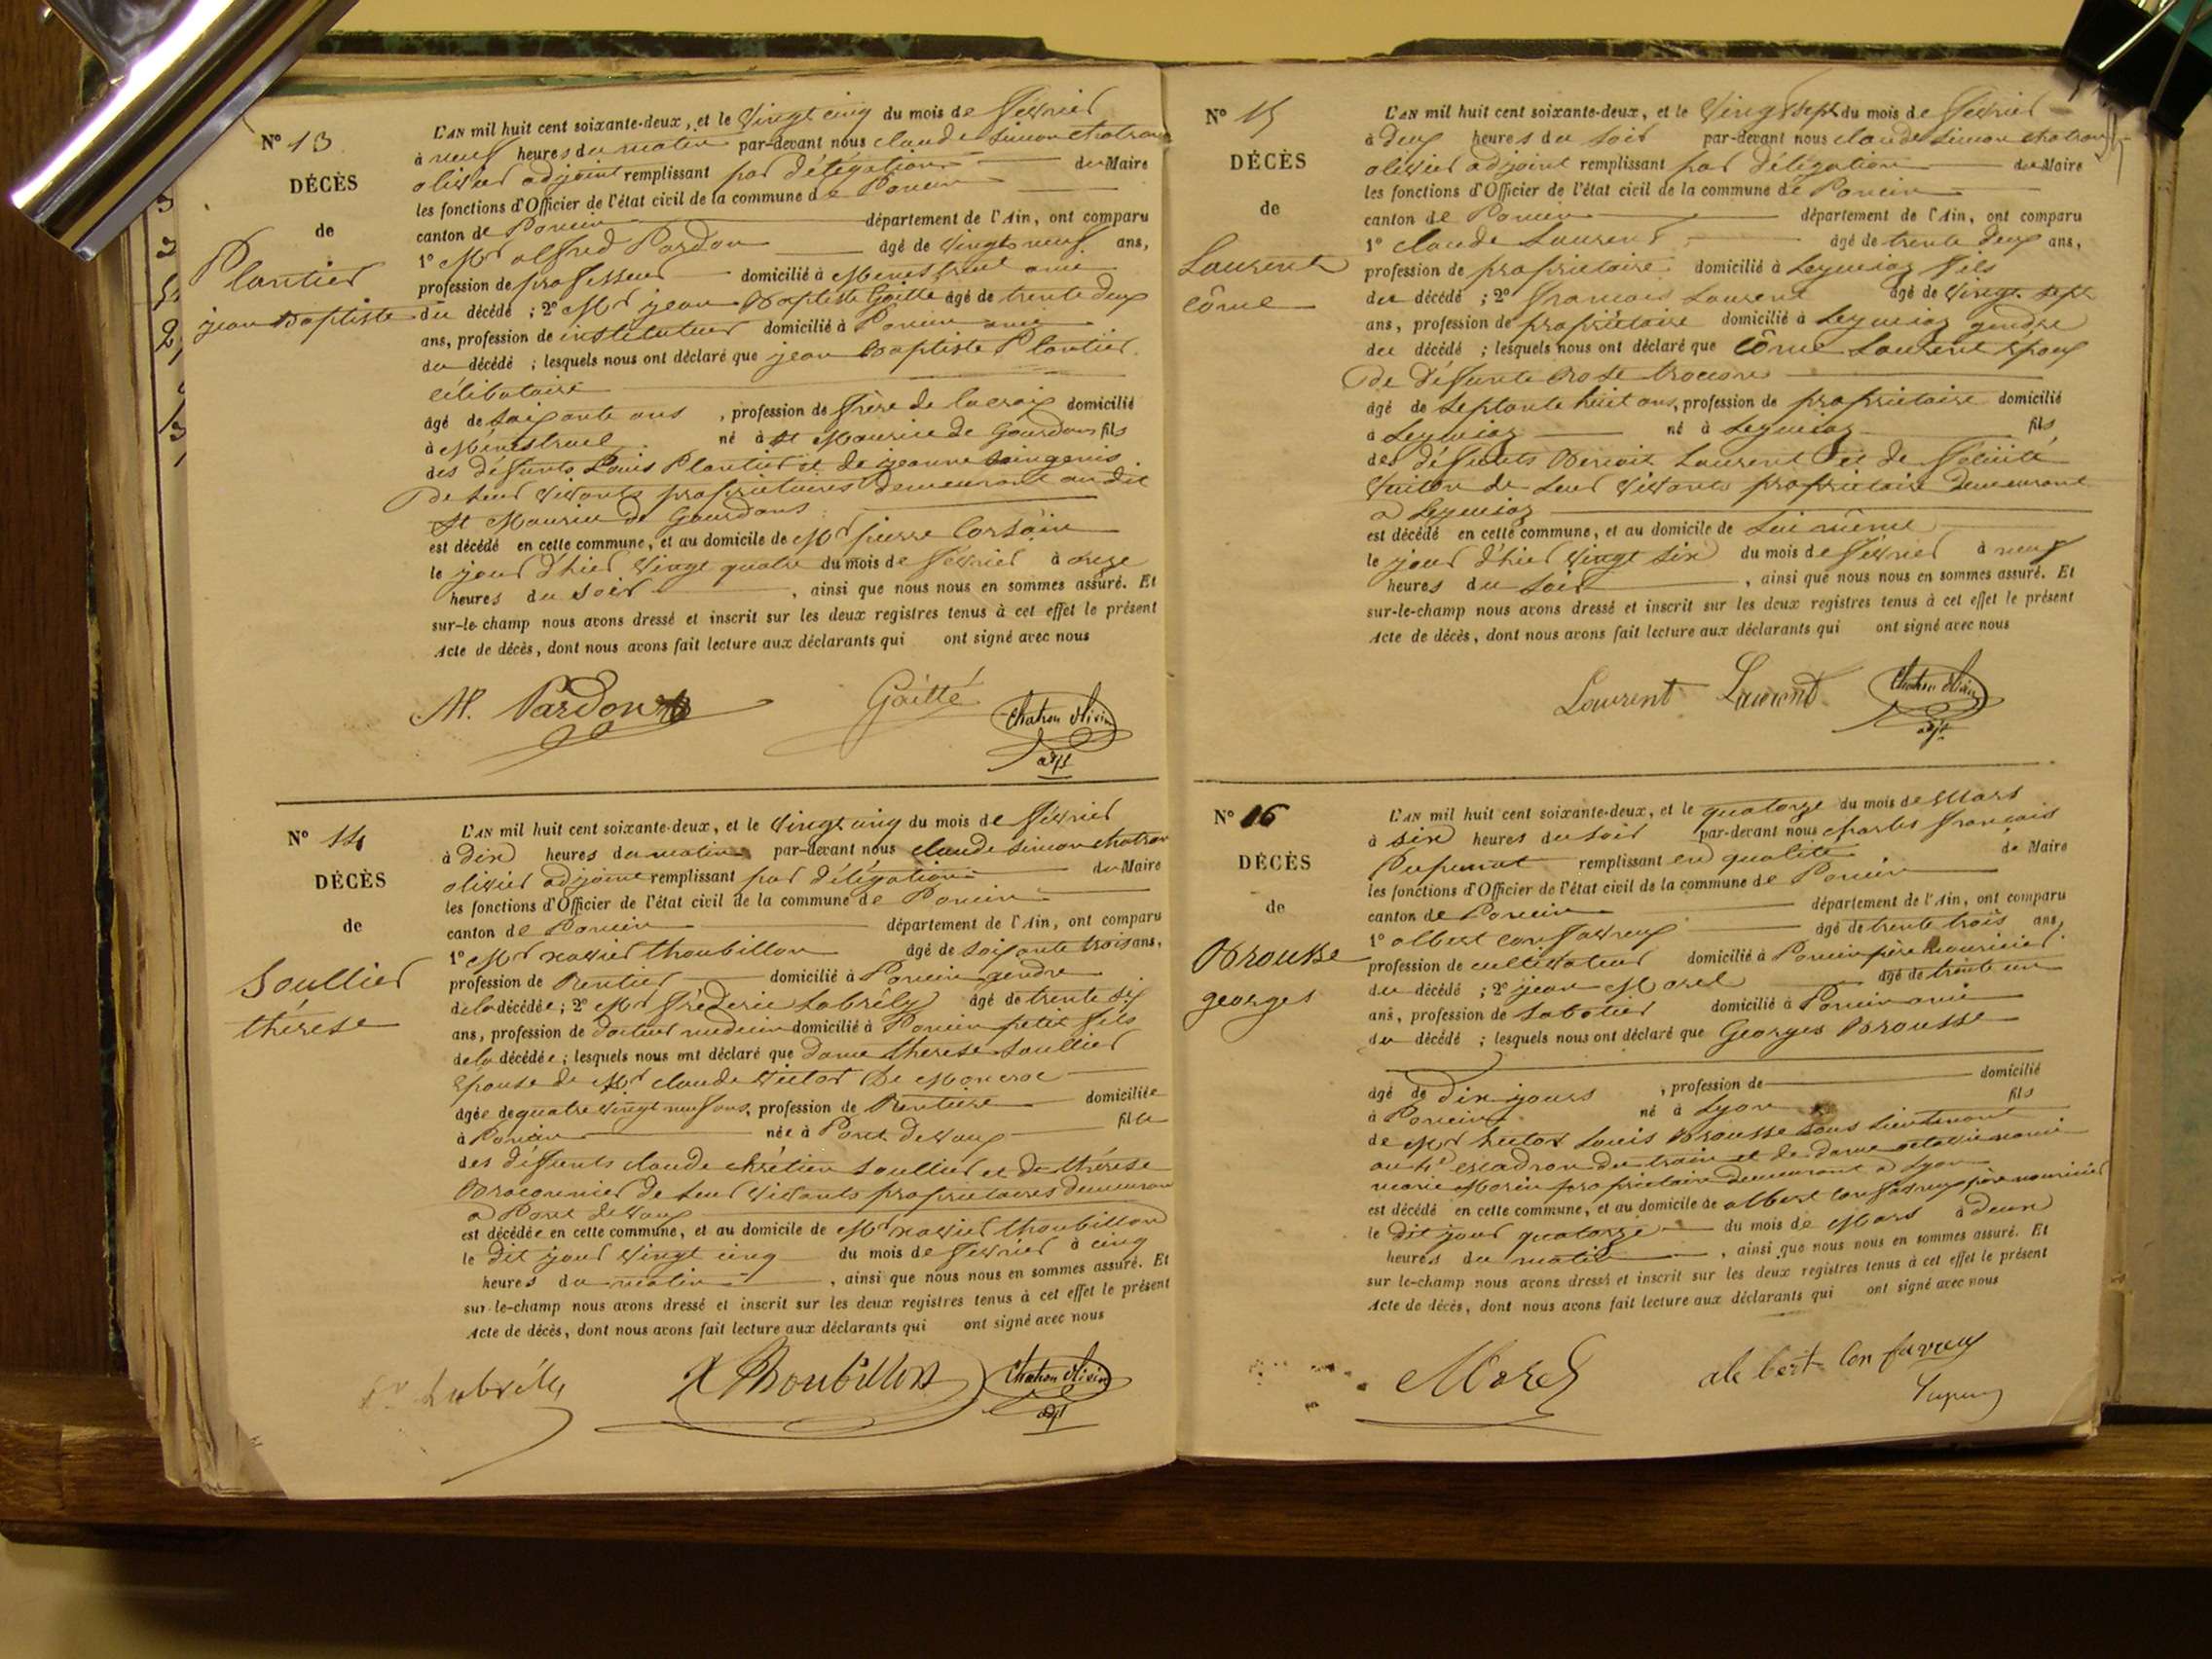 Nº 13
DÉCÈS
de
Plantier
jean Baptiste
L'AN mil huit cent soixante-deux, et le Vingt cinq du mois de février
à neuf heures du matin par-devant nous claude Simon chatron
olivier adjoint remplissant par délégation du Maire
les fonctions d'Officier de l'état civil de la commune de Poncin
canton de Poncin département de l'Ain, ont comparu
1º Mr alfred Pardon âgé de vingt neuf ans,
profession de professeur domicilié à Menestruel ami
du décédé ; 2º Mr jean Baptiste Gaitte âgé de trente deux
ans, profession de instituteur domicilié à Poncin ami
du décédé ; lesquels nous ont déclaré que jean Baptiste Plantier
célibataire
âgé de soixante ans , profession de frère de la croix domicilié
à Ménestruel né à St Maurice de Gourdans fils
des défunts Louis Plantier et de jeanne
de leur vivants propriétaires demeurant au dit
St Maurice de Gourdans
est décédé en cette commune, et au domicile de Mr pierre Corsain
le jour d'hier vingt quatre du mois de février à onze
heures du soir , ainsi que nous nous en sommes assuré. Et
sur-le-champ nous avons dressé et inscrit sur les deux registres tenus à cet effet le présent
Acte de décès, dont nous avons fait lecture aux déclarants qui ont signé avec nous
Al. Pardon Gaitté Chatron Olivier
adjt
Nº 14
DÉCÈS
de
Soullier
thérèse
L'AN mil huit cent soixante-deux, et le Vingt cinq du mois de février
à dix heures du matin par-devant nous claude Simon chatron
olivier adjoint remplissant par délégation du Maire
les fonctions d'Officier de l'état civil de la commune de Poncin
canton de Poncin département de l'Ain, ont comparu
1º Mr xavier thoubillon âgé de soixante trois ans,
profession de Rentier domicilié à Poncin gendre
de la décédée ; 2º Mr fréderic Labrély âgé de trente six
ans, profession de docteur medecin domicilié à Poncin petit fils
de la décédée ; lesquels nous ont déclaré que Dame therese Soullier
Epouse de Mr claude Victor De
âgée de quatre vingt neuf ans, profession de Rentiere domiciliée
à Poncin née à Pont de Vaux fille
des défunts claude chrétien Soullier et de thérèse
Braconnier de leur vivants propriétaires demeurant
a Pont de Vaux
est décédée en cette commune, et au domicile de Mr xavier thoubillon
le dit jour vingt cinq du mois de février à cinq
heures du matin , ainsi que nous nous en sommes assuré. Et
sur-le-champ nous avons dressé et inscrit sur les deux registres tenus à cet effet le présent
Acte de décès, dont nous avons fait lecture aux déclarants qui ont signé avec nous
Labrély X Thoubillon Chatron Olivier
adjt
Nº 15
DÉCÈS
de
Laurent
côme
L'AN mil huit cent soixante-deux, et le Vingt sept du mois de février
à deux heures du soir par-devant nous claude Simon chatron
olivier adjoint remplissant par délégation du Maire
les fonctions d'Officier de l'état civil de la commune de Poncin
canton de Poncin département de l'Ain, ont comparu
1º claude Laurent âgé de trente deux ans,
profession de propriétaire domicilié à Leymiaz fils
du décédé ; 2º francois Laurent âgé de vingt sept
ans, profession de propriétaire domicilié à Leymiaz gendre
du décédé ; lesquels nous ont déclaré que Côme Laurent époux
de défunte Rose
âgé de septante huit ans, profession de propriétaire domicilié
à Leymiaz né à Leymiaz fils
des défunts Benoit Laurent et de félicité
de leur vivants propriétaire demeurant
a Leymiaz
est décédé en cette commune, et au domicile de lui même
le jour d'hier vingt six du mois de février à neuf
heures du soir , ainsi que nous nous en sommes assuré. Et
sur-le-champ nous avons dressé et inscrit sur les deux registres tenus à cet effet le présent
Acte de décès, dont nous avons fait lecture aux déclarants qui ont signé avec nous
Laurent Laurent Chatron Olivier
adjt
Nº 16
DÉCÈS
de
Brousse
georges
L'AN mil huit cent soixante-deux, et le quatorze du mois de Mars
à six heures du soir par-devant nous charles francois
Pupunat remplissant en qualité de Maire
les fonctions d'Officier de l'état civil de la commune de Poncin
canton de Poncin département de l'Ain, ont comparu
1º albert confavreux âgé de trente trois ans,
profession de cultivateur domicilié à Poncin père nouricier
du décédé ; 2º jean Morel âgé de trente un
ans, profession de sabotier domicilié à Poncin ami
du décédé ; lesquels nous ont déclaré que Georges Brousse
âgé de dix jours , profession de domicilié
à Poncin né à Lyon fils
de Mr hector Louis Brousse sous lieutenant
au 4e escadron du train et de dame octavie marie
marie Morin propriétaire demeurant a Lyon
est décédé en cette commune, et au domicile de albert confavreux père nouricier
le dit jour quatorze du mois de Mars à deux
heures du matin , ainsi que nous nous en sommes assuré. Et
sur-le-champ nous avons dressé et inscrit sur les deux registres tenus à cet effet le présent
Acte de décès, dont nous avons fait lecture aux déclarants qui ont signé avec nous
Morel ale bert Confavreux